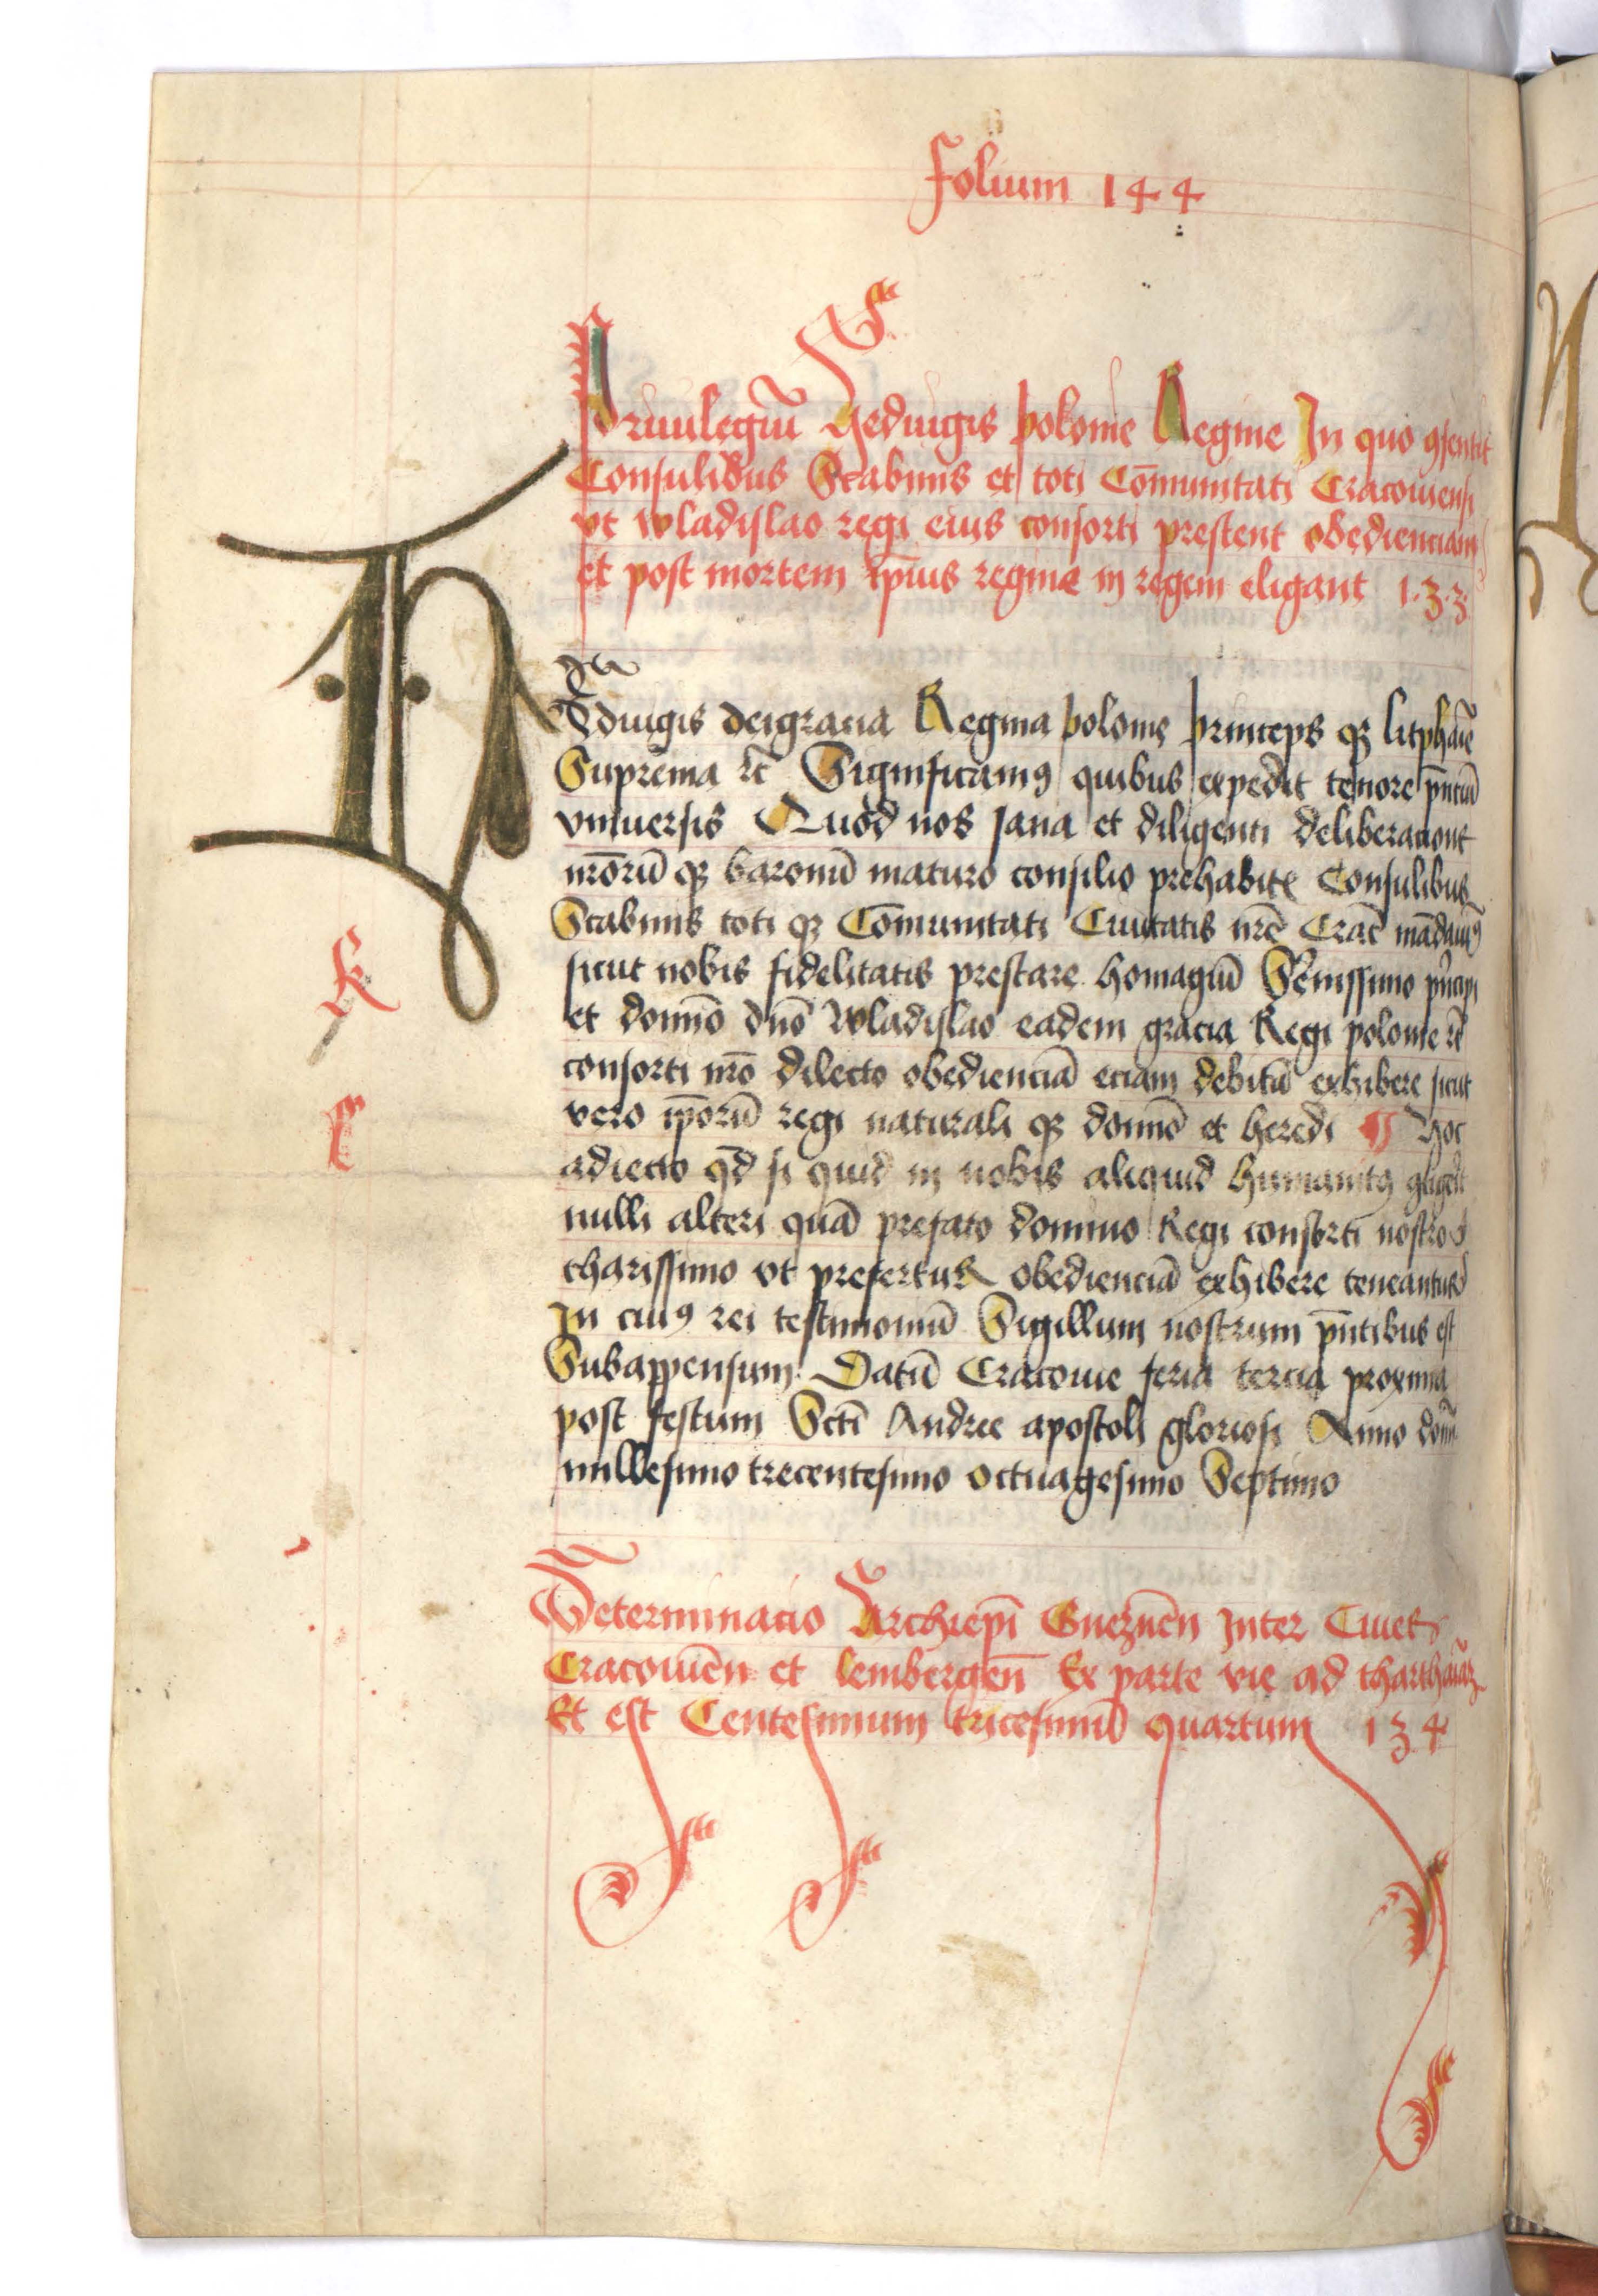 folium 144
Priuilegiū Hedvigis polonie Regine In quo ꝯsentit
Consulibus Scabinis et toti Cōmunitati Cracouiensi
vt wladislao regi eius consorti prestent obedienciam
et post mortem ip̄ius regine in regem eligant 1·3·3·
HEdvigis dei gracia Regina polonie princeps qȝ litphāie
Suprēma rc̄ Significamꝯ quibus expedit tenore pn̄tiū
vniuersis Quod nos sana et diligenti deliberacione
nr̄orū qȝ baronū maturo consilio prehabito Consulibus
Scabinis toti qȝ Cōmunitati Ciuitatis nr̄e Crac̄ mādauimꝯ
sicut nobis fidelitatis prestare homagiū Sereni̅ssimo pn̄cipi
et domīo dn̄o wladislao eadem gracia Regi polonie rc̄
consorti nr̄o dilecto obedienciā eciam debitā exhibere sicut
vero ip̄orū regi naturali qȝ domīo et heredi ¶ Hoc
adiecto qd̄ si quid in nobis aliquid humanitꝯ
nulli alteri quā prefato domino Regi consorti nostro
charissimo vt prefertur obedienciā exhibere teneantur
In cuiꝯ rei testimoniū Sigillum nostrum pn̄tibus est
Subappensum Datū Cracouie feria tercia proxima
post festum Sctī Andree apostoli gloriosi Anno domī
millesimo trecentesimo octuagesimo Septimo
k
c
Determinacio Archiepī Gneznēn Inter Ciues
Cracouiēn et lembergēn Ex parte vie ad
Et est Centesimum tricesimū quartum 1 3 4